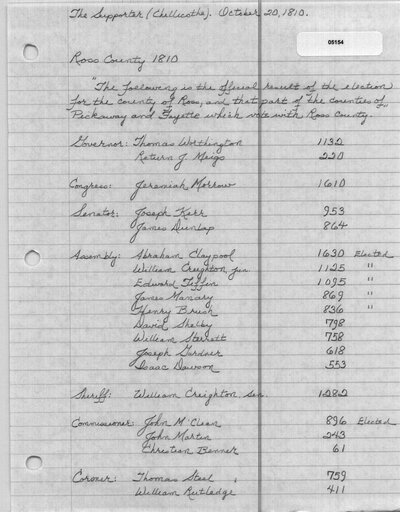 The Supporter (Chillicothe). October 20, 1810.
05154
Ross County 1810
"The following is the official result of the election
for the county of Ross, and that part of the counties of
Pickaway and Fayette which vote with Ross County."
Governor: Thomas Worthington 1132
Return J. Meigs 220
Congress: Jeremiah Morrow 1610
Senator: Joseph Kerr 953
James Dunlap 864
Assembly: Abraham Claypool 1630 Elected
William Creighton, jun. 1125 "
Edward Tiffin 1095 "
James Manary 869 "
Henry Brush 836 "
David Shelby 798
William Sterrett 758
Joseph Gardner 618
Isaac Dawson 553
Sheriff: William Creighton, sen. 1282
Commissioner: John M'Clean 896 Elected
John Martin 243
Christian Benner 61
Coroner: Thomas Steel 759
William Rutledge 411